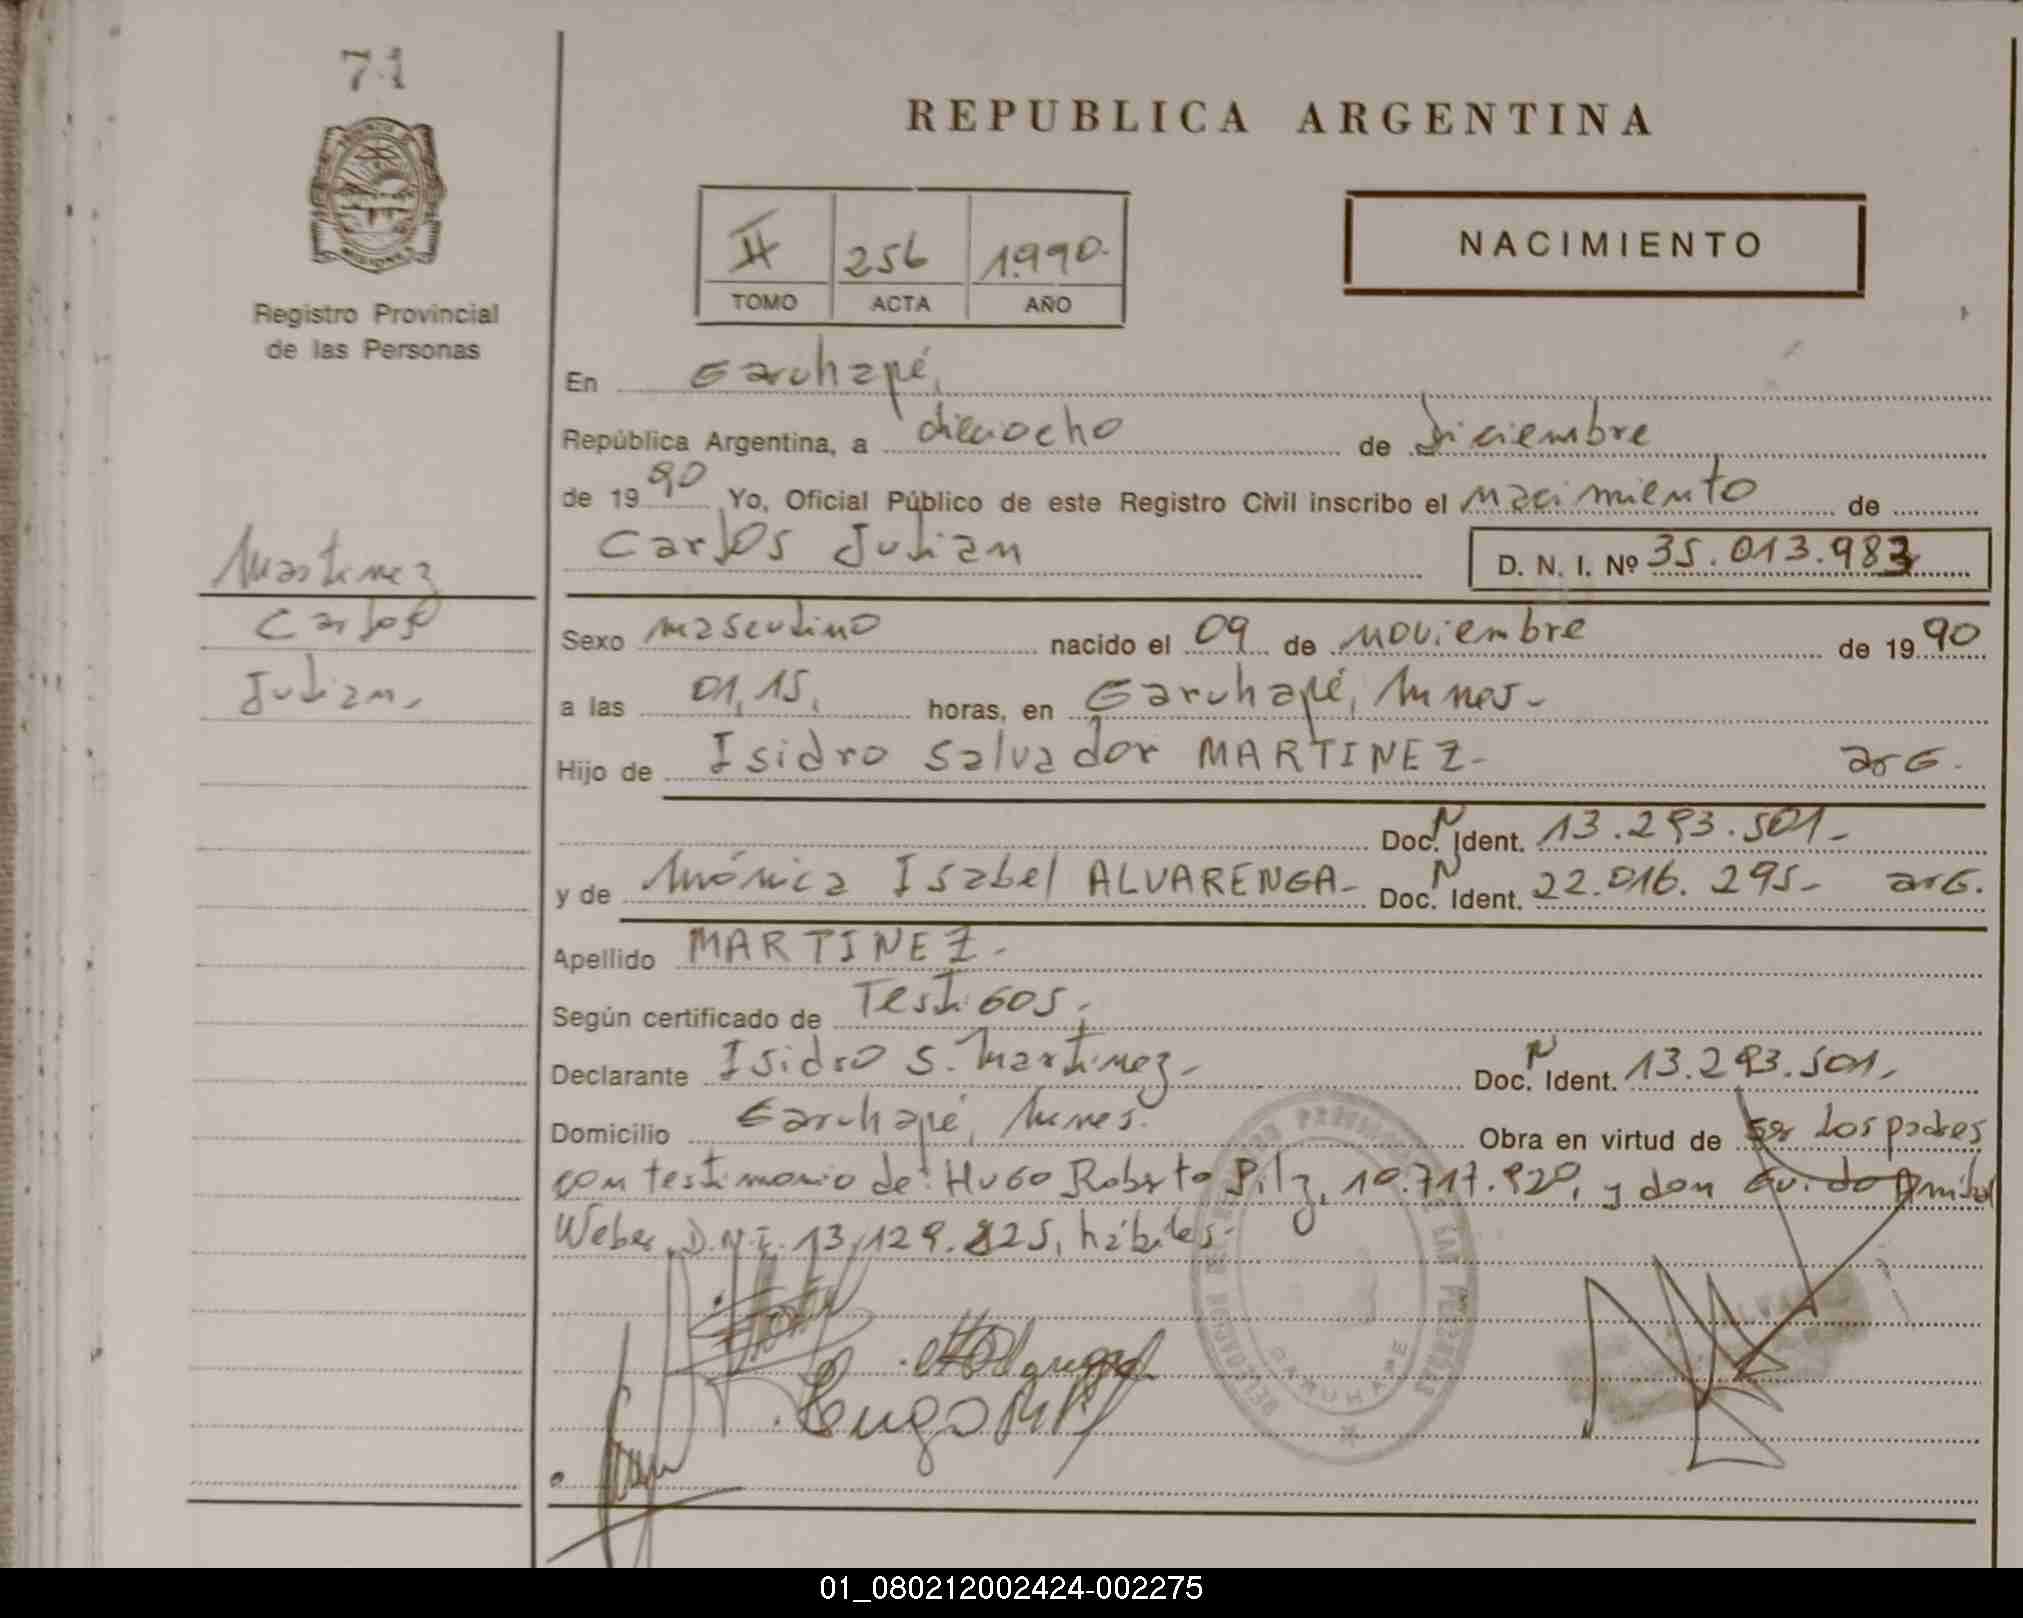 71
REPUBLICA ARGENTINA
Registro Provincial
de las Personas
II 256 1.990.
TOMO ACTA AÑO
NACIMIENTO
En Garuhapé,
República Argentina, a dieciocho de Diciembre
de 1990 Yo, Oficial Público de este Registro Civil inscribo el nacimiento de
Carlos Julian D. N. I. Nº 35.013.983
Martinez
Carlos
Julian,
Sexo masculino nacido el 09 de noviembre de 1990
a las 01,15, horas, en Garuhapé, Mnes.-
Hijo de Isidro Salvador MARTINEZ.- arG.
Doc. N Ident. 13.293.501.-
y de Mónica Isabel ALVARENGA.- Doc. N Ident. 22.016.295.- arG.
Apellido MARTINEZ.-
Según certificado de Testigos.-
Declarante Isidro S. Martinez.- Doc. N Ident. 13.293.501.-
Domicilio Garuhapé, Mnes. Obra en virtud de ser los padres
con testimonio de: Hugo Roberto Pilz, 10.717.920, y don Guido Anibal
Weber, D.N.I. 13.129.825, hábiles.-
GARUHAPE
01_080212002424-002275